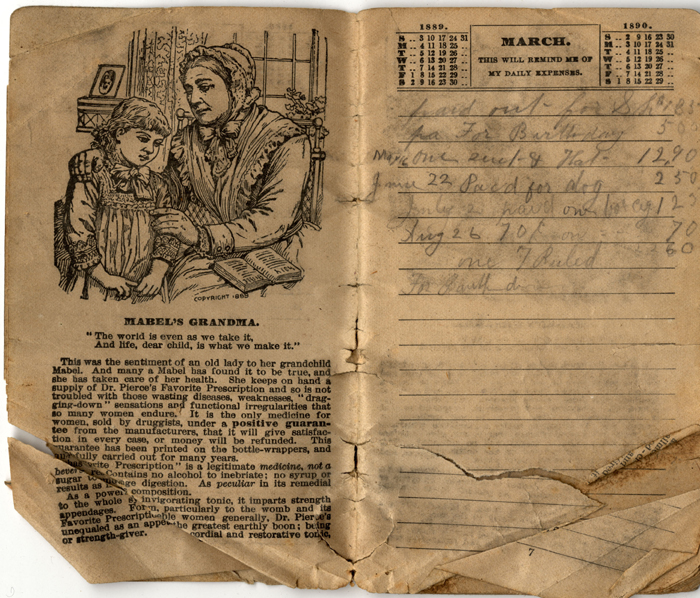 COPYRIGHT 1888
MABEL'S GRANDMA.
"The world is even as we take it,
And life, dear child, is what we make it."
This was the sentiment of an old lady to her grandchild
Mabel. And many a Mabel has found it to be true, and
she has taken care of her health. She keeps on hand a
supply of Dr. Pierce's Favorite Prescription and so is not
troubled with those wasting diseases, weaknesses, "drag-
ging-down" sensations and functional irregularities that
so many women endure. It is the only medicine for
women, sold by druggists, under a positive guaran-
tee from the manufacturers, that it will give satisfac-
tion in every case, or money will be refunded. This
guarantee has been printed on the bottle-wrappers, and
carried out for many years.
Prescription" is a legitimate medicine, not a
Contains no alcohol to inebriate; no syrup or
sugar to digestion. As peculiar in its remedial
results as composition.
As a powerful invigorating tonic, it imparts strength
to the whole particularly to the womb and its
appendages. For women generally, Dr. Pierce's
Favorite Prescription the greatest earthly boon; being
unequaled as an cordial and restorative tonic,
or strength-giver.
1889.
S .. 3 10 17 24 31
M .. 4 11 18 25 ..
T .. 5 12 19 26 ..
W .. 6 13 20 27 ..
T .. 7 14 21 28 ..
F 1 8 15 22 29 ..
S 2 9 16 23 30 ..
MARCH.
THIS WILL REMIND ME OF
MY DAILY EXPENSES.
1890.
S .. 2 9 16 23 30
M .. 3 10 17 24 31
T .. 4 11 18 25 ..
W .. 5 12 19 26 ..
T .. 6 13 20 27 ..
F .. 7 14 21 28 ..
S 1 8 15 22 29 ..
paid out for
pa For Birthday 5
one suit & Hat 12,90
June 22 Paed for dog 2 50
July 2 paid on 1 25
Aug 26 70 on 70
one 60
For
7